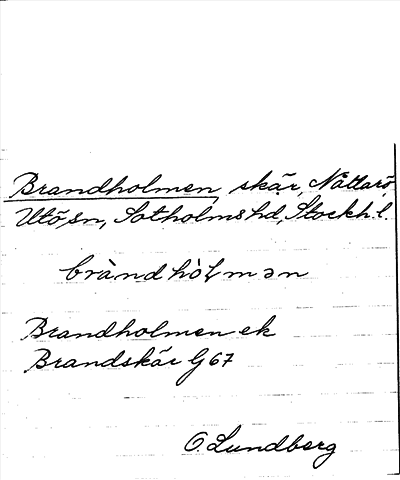 Brandholmen, skär, Nåttarö,
Utö sn, Sotholms hd, Stockh. l.
bràndhòłmən
Brandholmen ek
Brandskär G 67
O. Lundberg